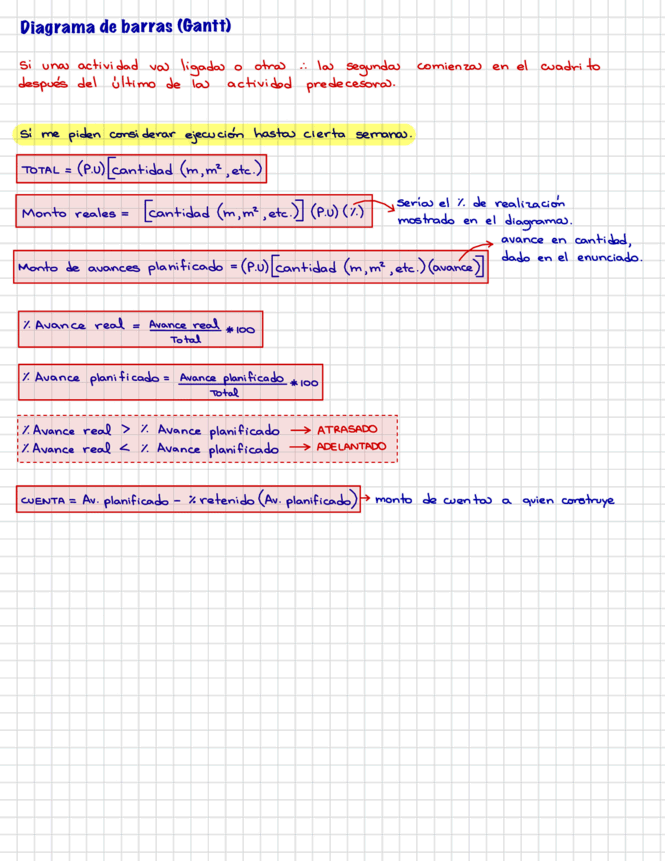 Diagrama de barras (Gantt)
Si una actividad va ligada a otra ∴ la segunda comienza en el cuadrito
después del último de la actividad predecesora.
Si me piden considerar ejecución hasta cierta semana.
TOTAL = (P.U)[cantidad (m,m²,etc.)
Monto reales = [cantidad (m,m²,etc.)] (P.U)(%)
sería el % de realización
mostrado en el diagrama.
avance en cantidad,
dado en el enunciado.
Monto de avances planificado = (P.U)[cantidad (m,m²,etc.)(avance)]
% Avance real = Avance real / Total * 100
% Avance planificado = Avance planificado / Total * 100
% Avance real > % Avance planificado → ATRASADO
% Avance real < % Avance planificado → ADELANTADO
CUENTA = Av. planificado - % retenido (Av. planificado) → monto de cuenta a quien construye